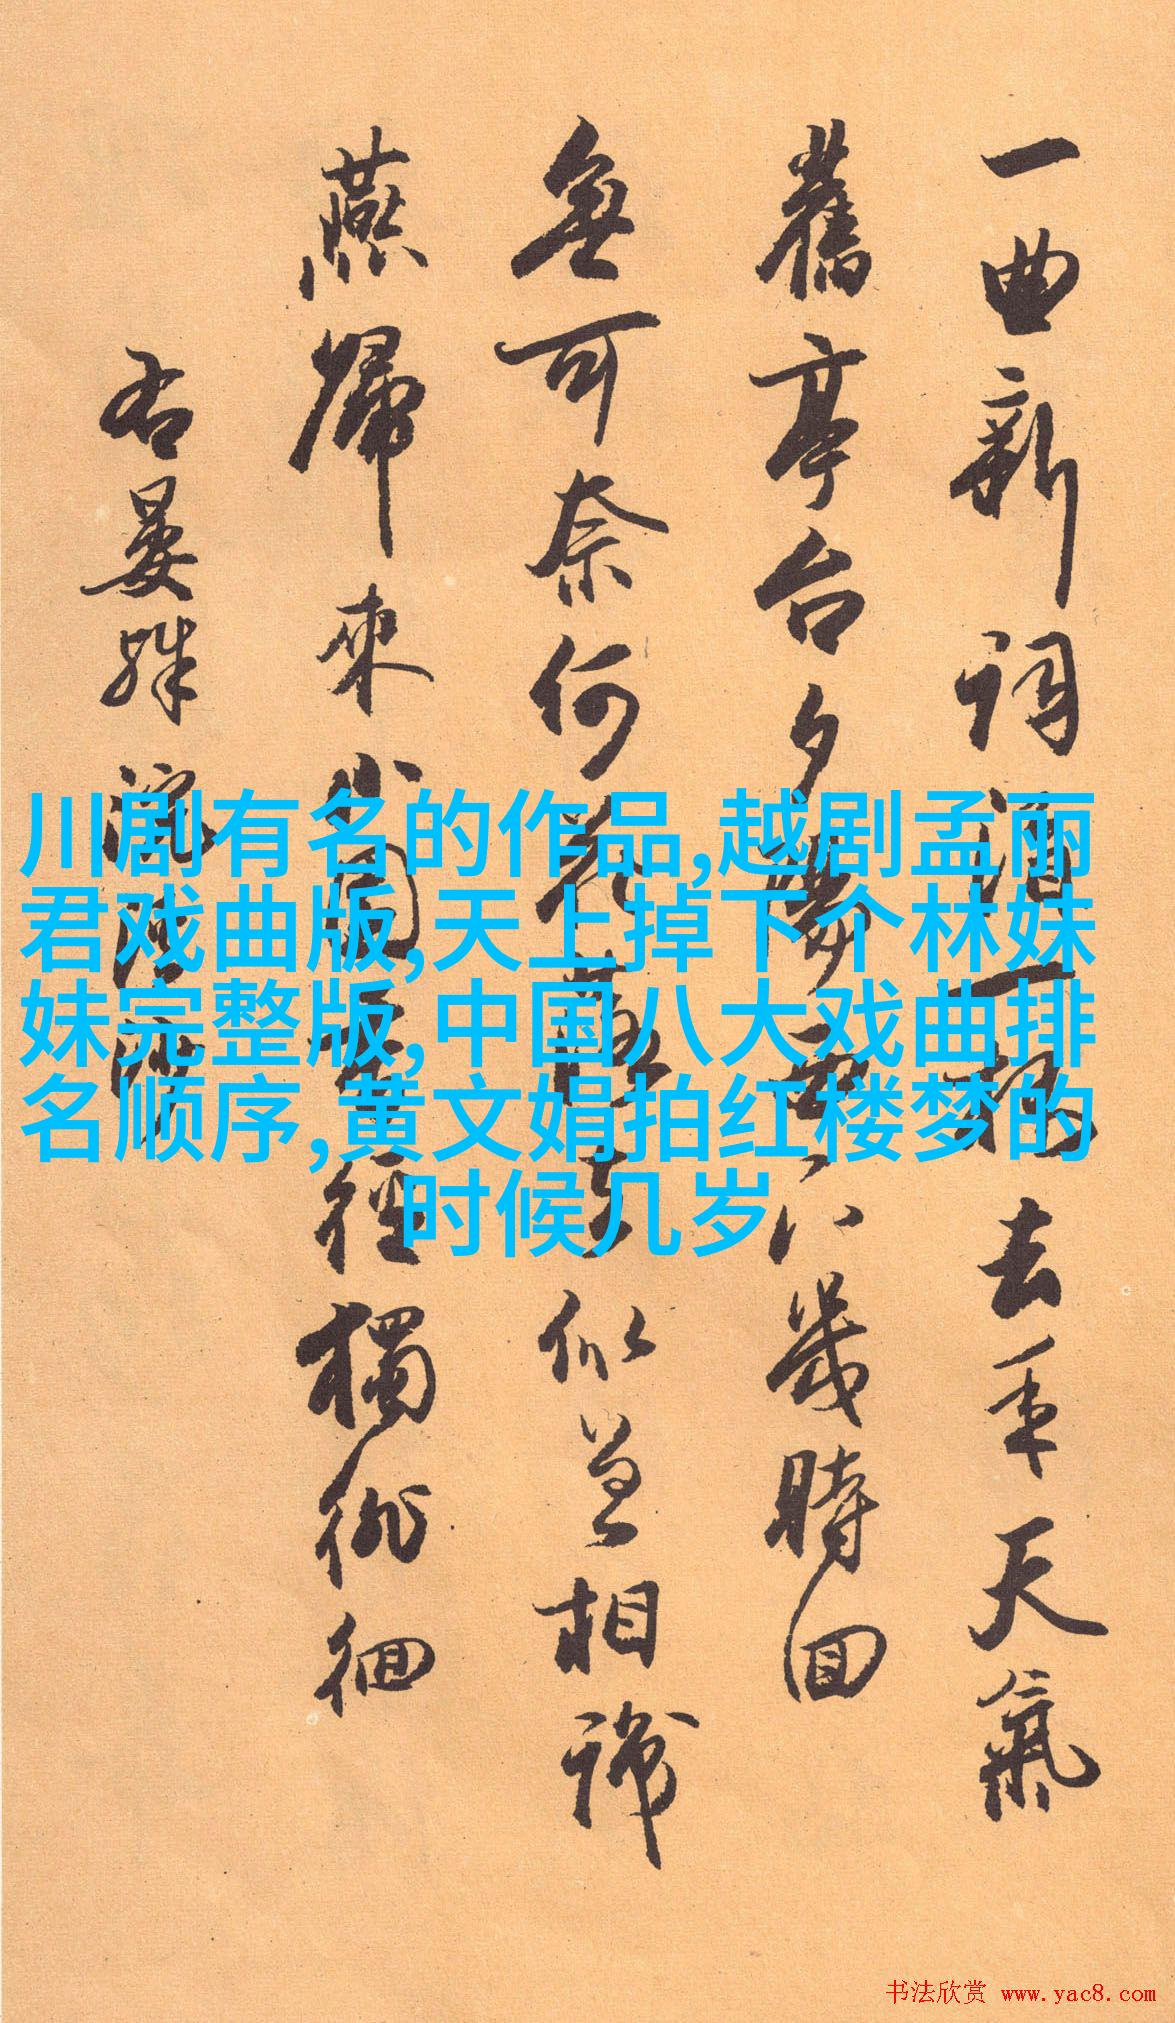 一曲新詞酒一杯去年天氣
舊亭台夕陽西下幾時回
無可奈何花落去似曾相識
燕歸來小園香徑獨徘徊
右晏殊浣溪沙
川剧有名的作品,越剧孟丽
君戏曲版,天上掉下个林妹
妹完整版,中国八大戏曲排
名顺序,黄文娟拍红楼梦的
时候几岁
书法欣赏 www.yac8.com